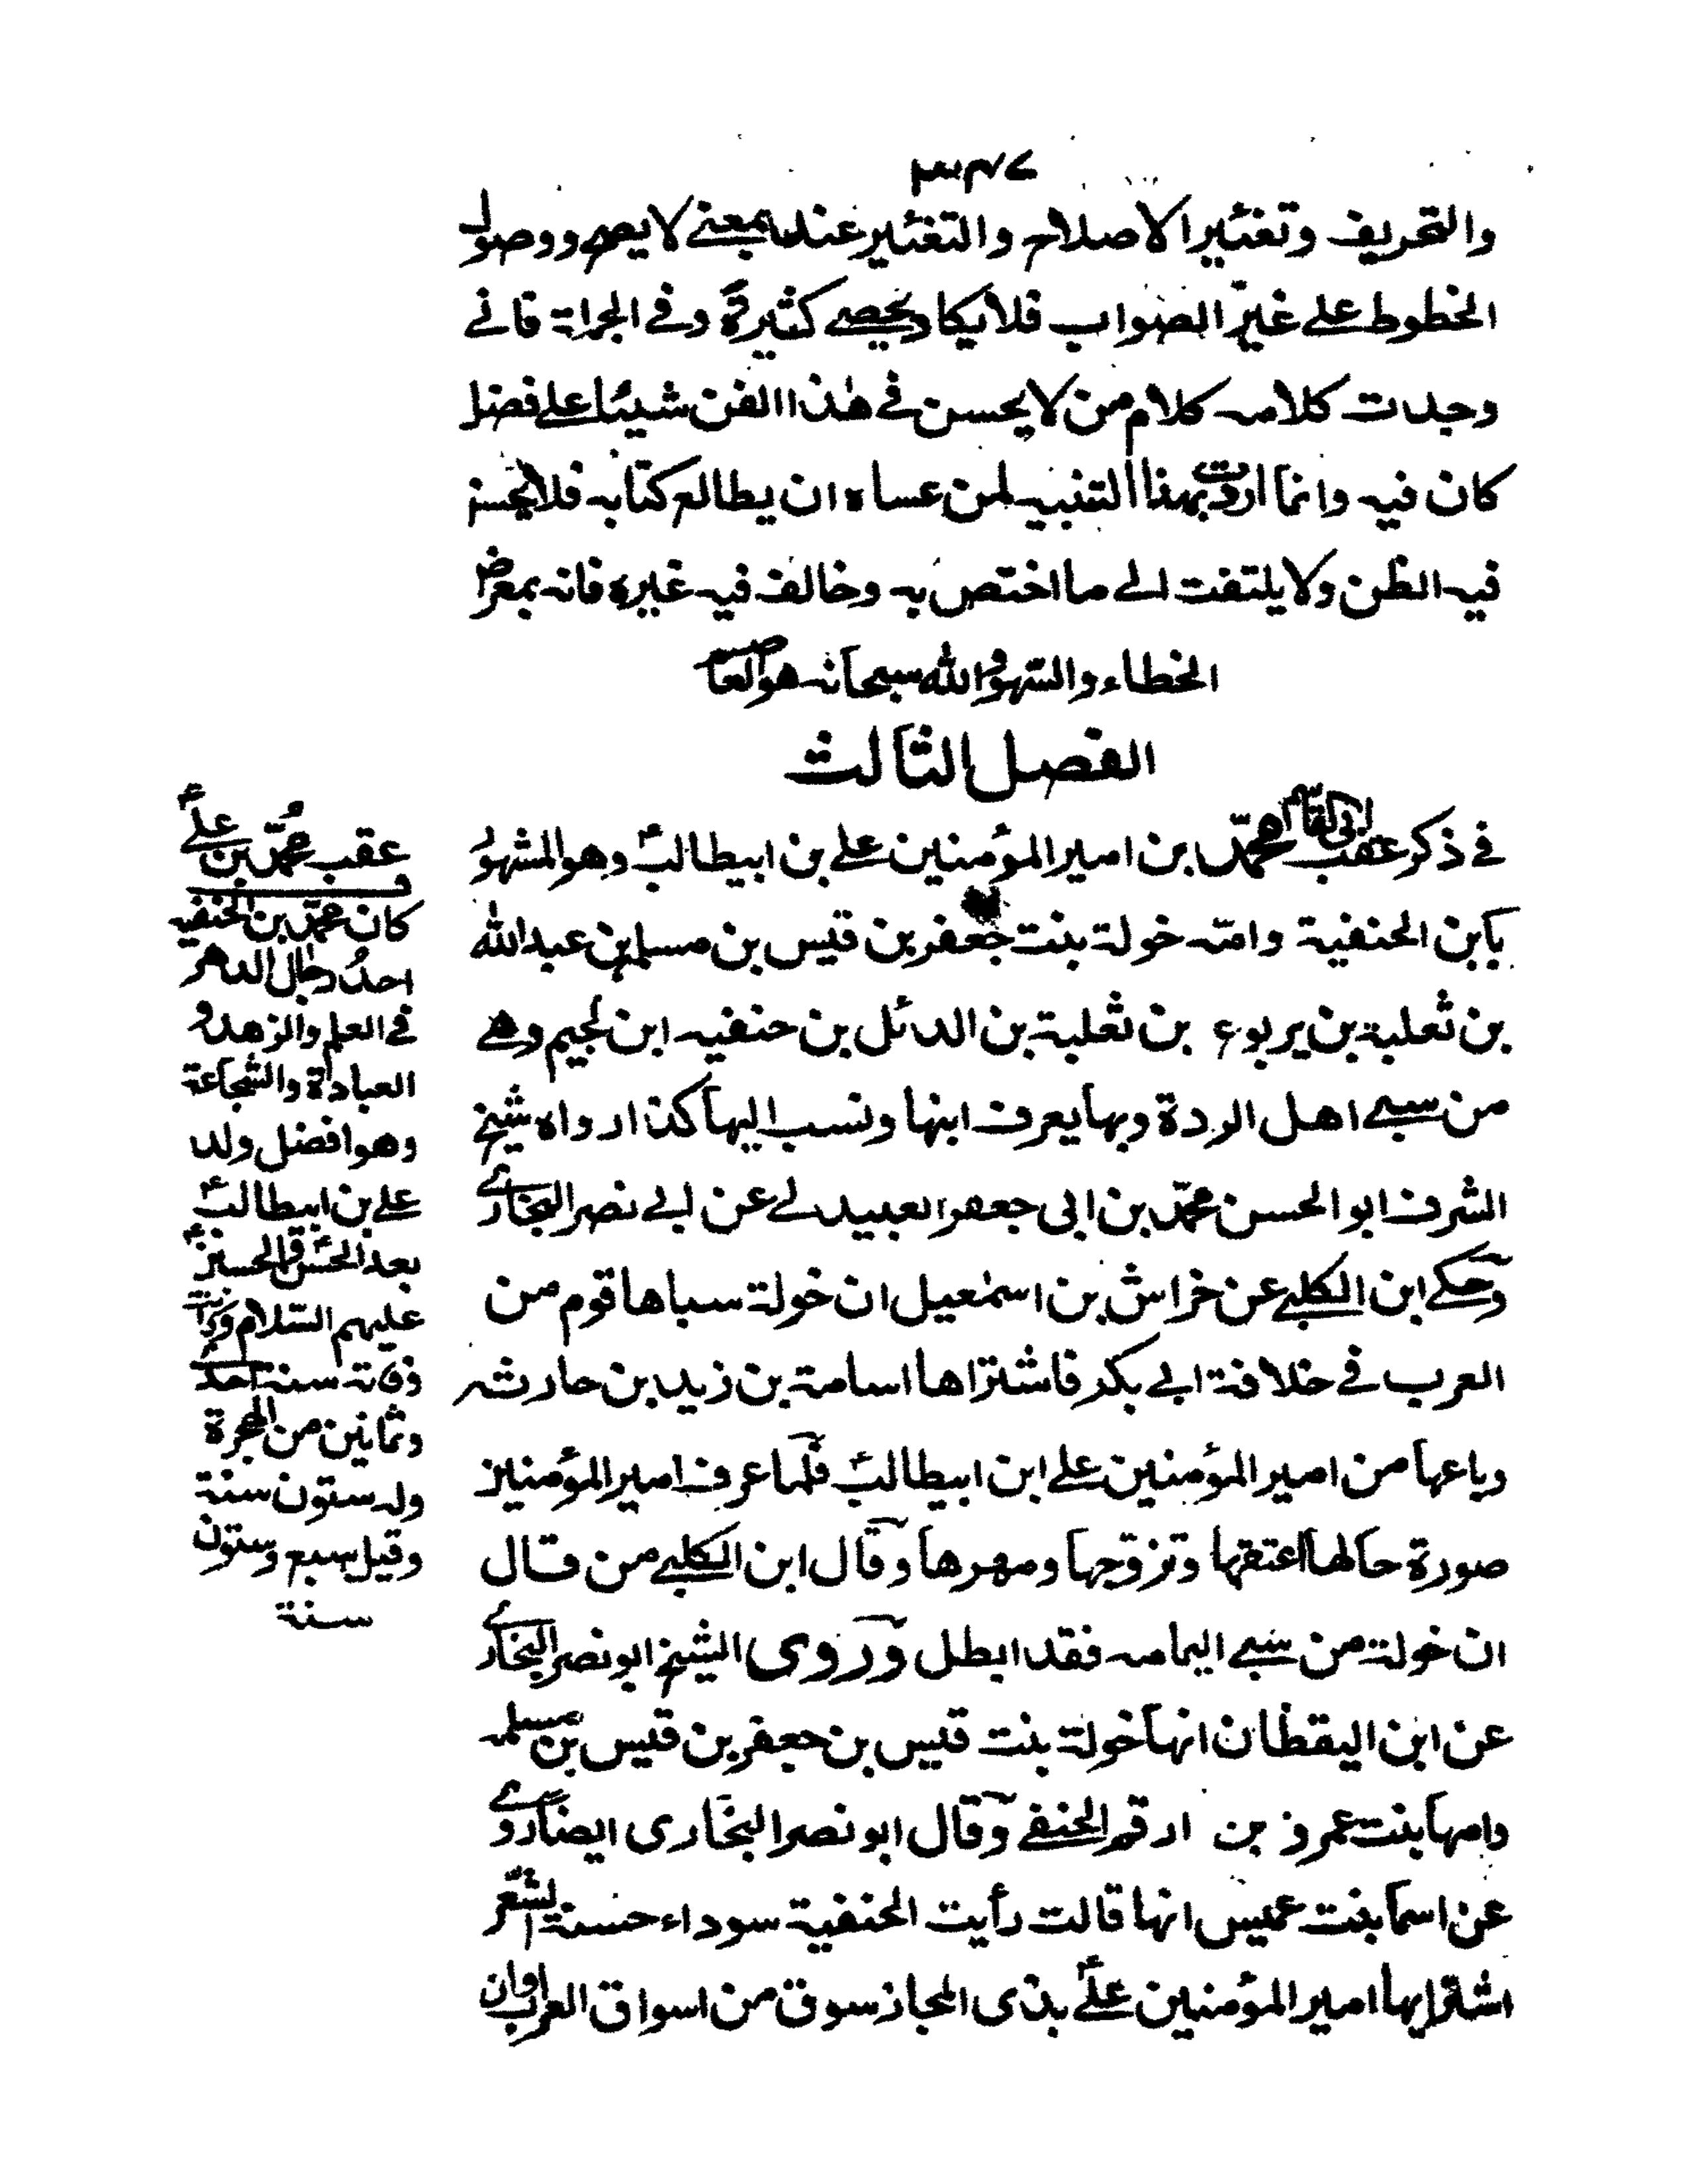 ٣٤٧
والتحريف وتغئير الاصلاح والتغئير عنده بمعنے لا يصح ووصول
الخطوط علے غير الصواب فلا يكاد يحصے كثيرة وفے الجراة فانے
وجدت كلامه كلام من لا يحسن فے هذا الفن شيئا علے فضل
كان فيه وانما اردت بهذا التنبيه لمن عساه ان يطالع كتابه فلا يحسن
فيه الظن ولا يلتفت الے ما اختص به وخالف فيه غيره فانه بمعرض
الخطاء والسّهو والله سبحانه هو العاصم
الفصل الثالث
فے ذكر عقب ابی القاسم محمّد ابن امير المؤمنين علے بن ابيطالبؑ وهو المشهور
بابن الحنفية وامّه خولة بنت جعفر بن قيس بن مسلمه بن عبد الله
بن ثعلبة بن يربوع بن ثعلبة بن الدائل بن حنفيه ابن لجيم وهے
من سبے اهل الردة وبها يعرف ابنها ونسب اليها كذا رواه شيخ
الشرف ابو الحسن محمّد بن ابی جعفر العبيدلے عن ابے نصر البخارے
وحكے ابن الكلبے عن خراش بن اسمٰعيل ان خولة سباها قوم من
العرب فے خلافة ابے بكر فاشتراها اسامة بن زيد بن حارثه
وباعها من امير المؤمنين علے ابن ابيطالبؑ فلمّا عرف امير المؤمنين
صورة حالها اعتقها وتزوجها ومهرها وقال ابن الكلبے من قال
ان خولة من سبے اليمامه فقد ابطل وروی الشيخ ابو نصر البخارے
عن ابن اليقظان انها خولة بنت قيس بن جعفر بن قيس بن مسلمه
وامها بنت عمرو بن ارقم الحنفے وقال ابو نصر البخاری ايضا روے
عن اسما بنت عميس انها قالت رأيت الحنفية سوداء حسنة الشعر
اشتراها امير المؤمنين علےؑ بذی المجاز سوق من اسواق العرب اوان
عقب محُمّد بن علےؑ
كان محمّد بن الحنفيه
احدُ رجال الدهر
فے العلم والزهد و
العبادة والشجاعة
وهو افضل ولد
علے بن ابيطالبؑ
بعد الحسنؑ والحسينؑ
عليهم السّلام وكانت
وفاته سنة احد
وثمانين من الهجرة
وله ستون سنة
وقيل سبع وستون
سنة